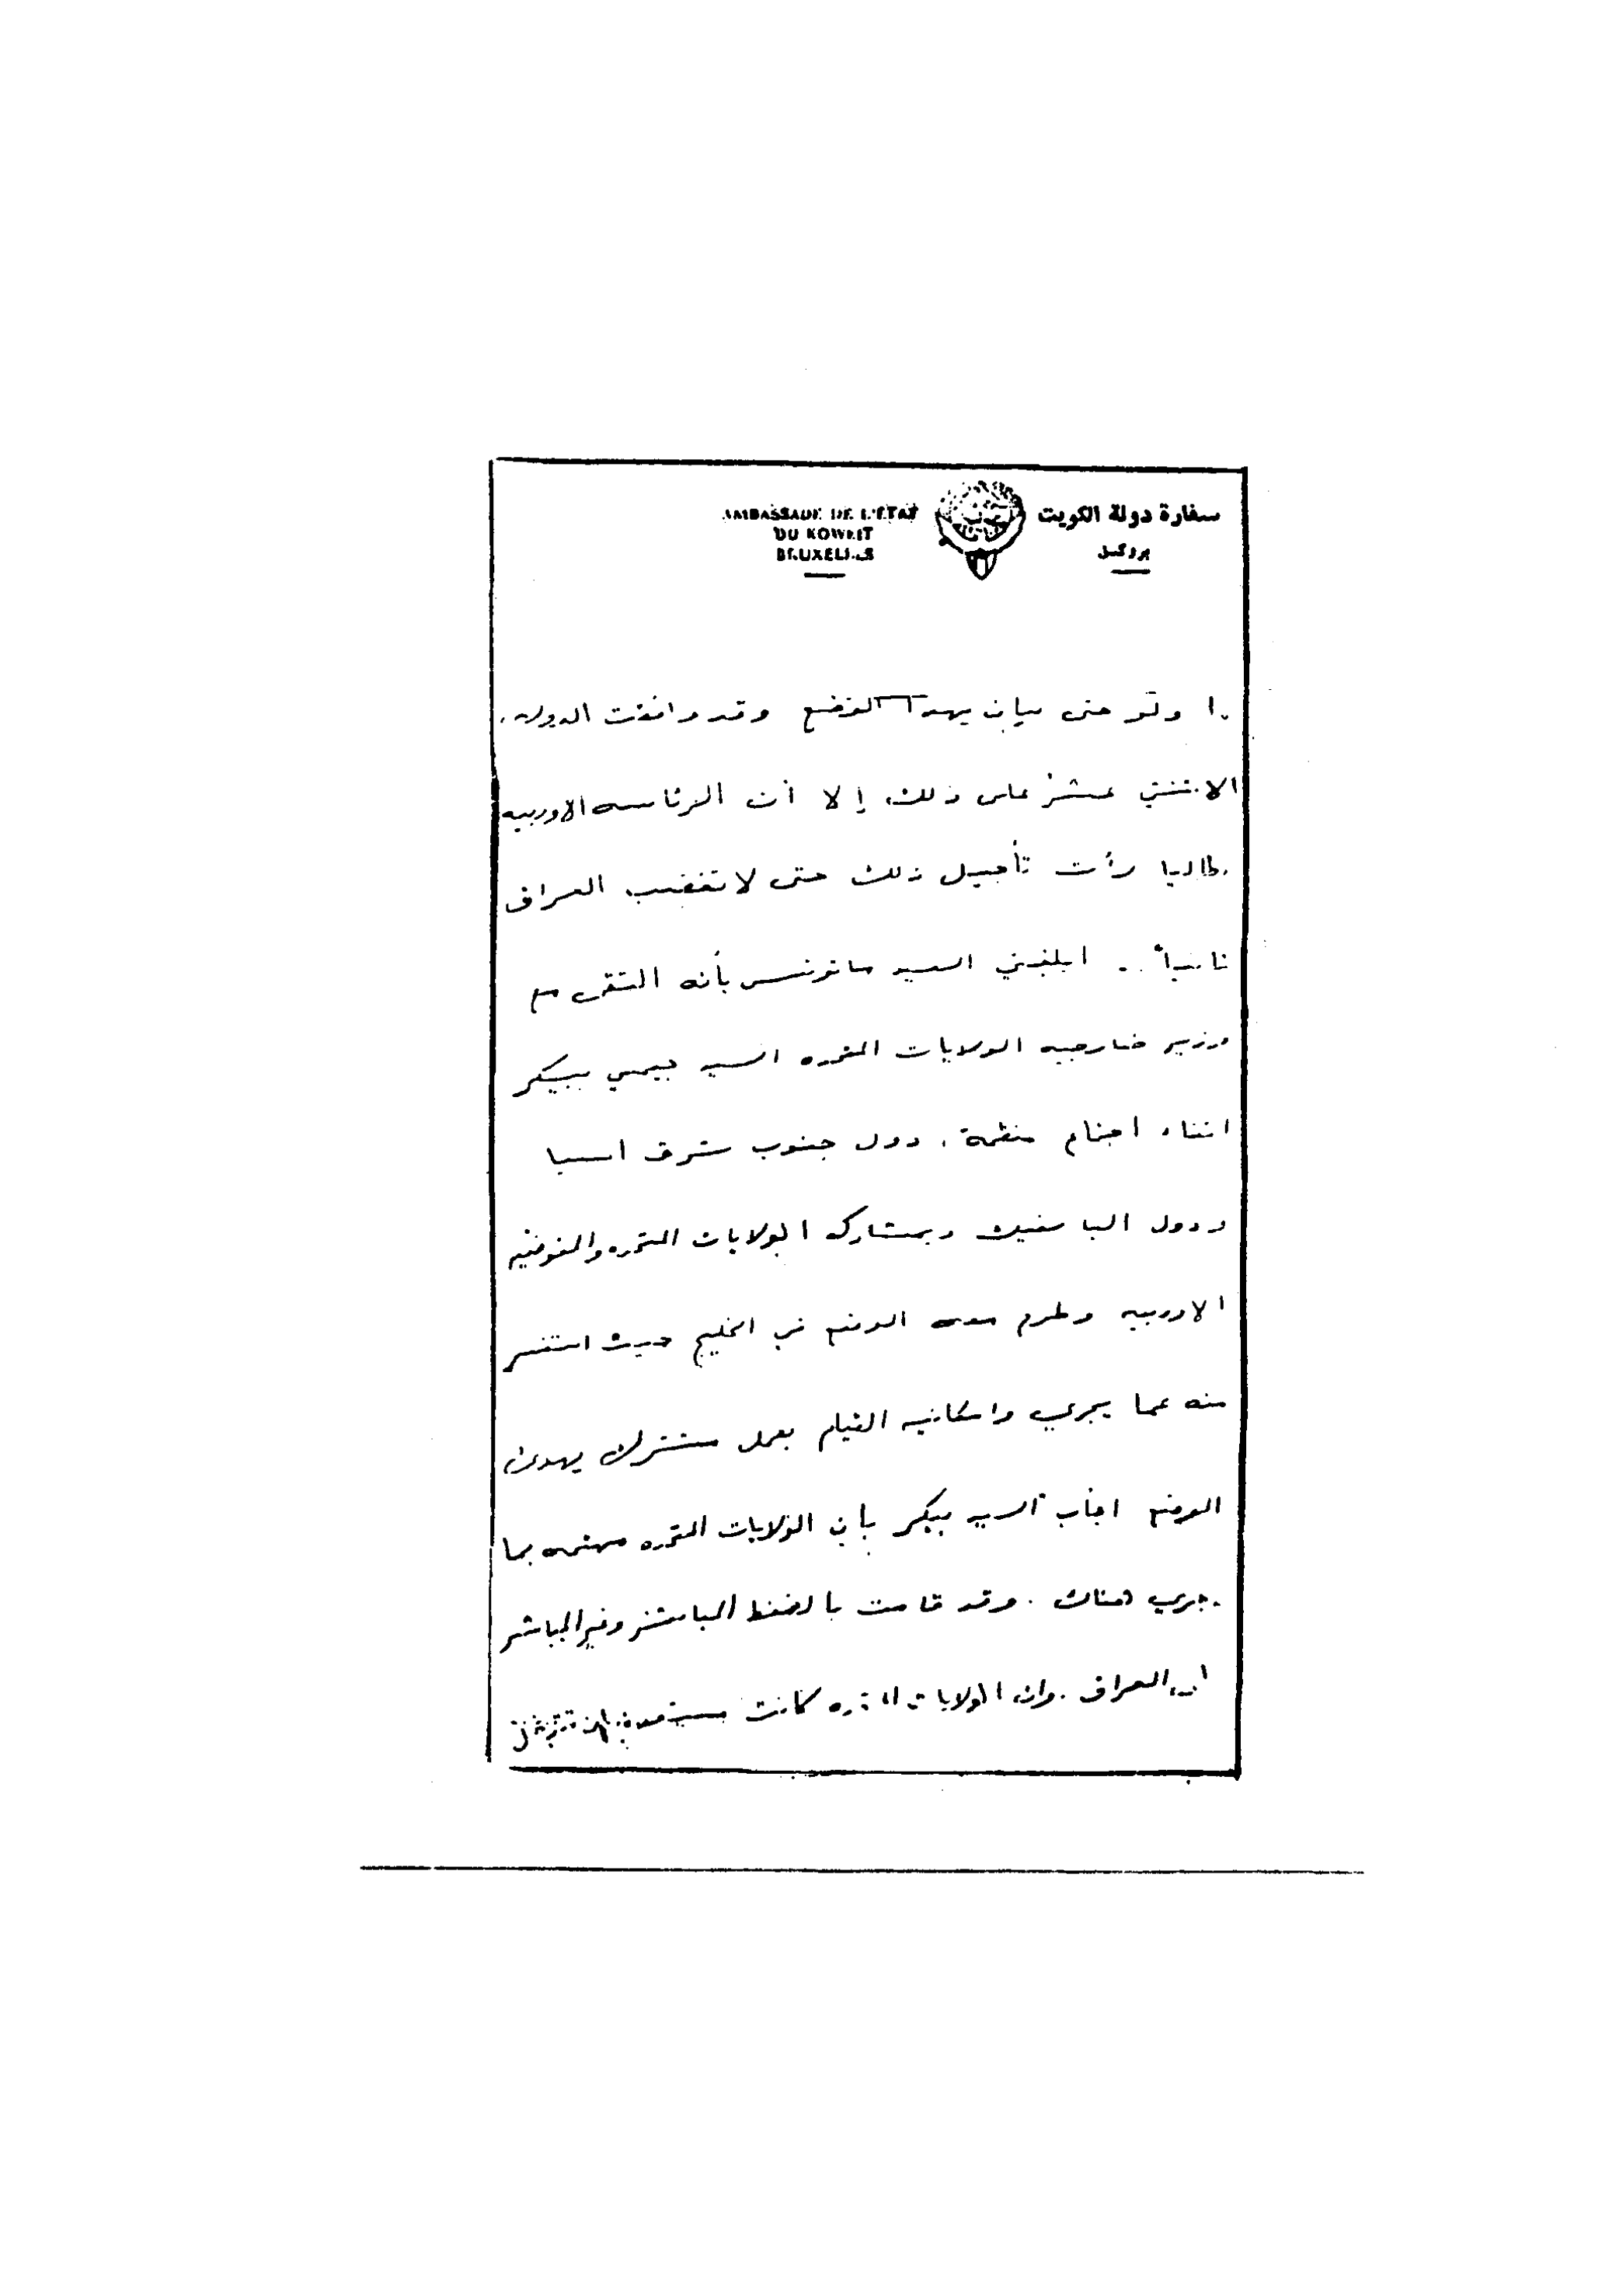 سفارة دولة الكويت
بروكسل
AMBASSADE DE L'ETAT
DU KOWEIT
BRUXELLES
ولو حتى بيان يهدأ الوضع وقد وافقت الدول
الاثنتي عشر على ذلك إلا أن الرئاسه الاوربيه
يطاليا رأت تأجيل ذلك حتى لا تغضب العراق
ثانياً .. ابلغني السيد ماتوتس بأنه التقى مع
وزير خارجيه الولايات المتحده السيد جيمس بيكر
اثناء اجتماع منظمة دول جنوب شرق اسيا
ودول الباسفيك وبمشاركه الولايات المتحده والمفوضيه
الاوربيه وطرح معه الوضع في الخليج حيث استفسر
منه عما يجري وامكانيه القيام بعمل مشترك يهدئ
الوضع اجاب السيد بيكر بأن الولايات المتحده مهتمه بما
يجري هناك . وقد قامت بالضغط المباشر وغير المباشر
العراق . وان الولايات المتحده كانت مستعدة ان